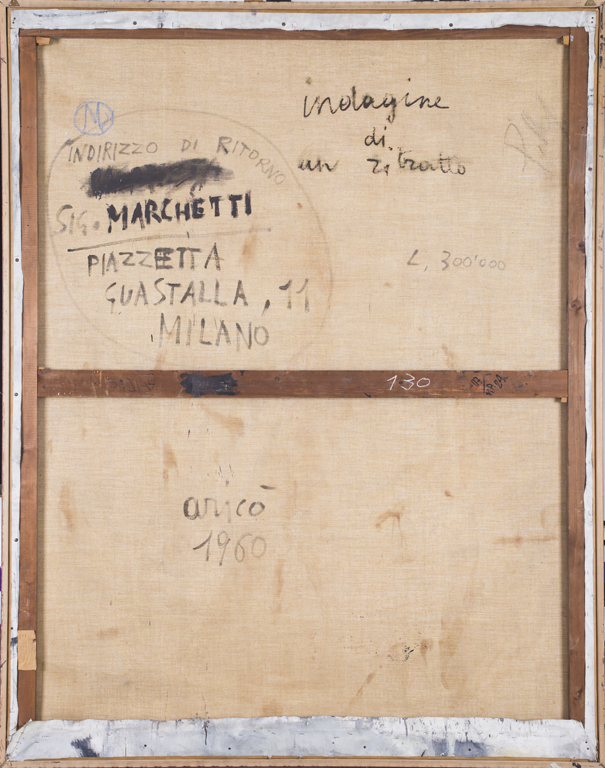 indagine
di
un ritratto
INDIRIZZO DI RITORNO
SIG. MARCHETTI
PIAZZETTA
GUASTALLA, 11
MILANO
L, 300'000
130
aricò
1960